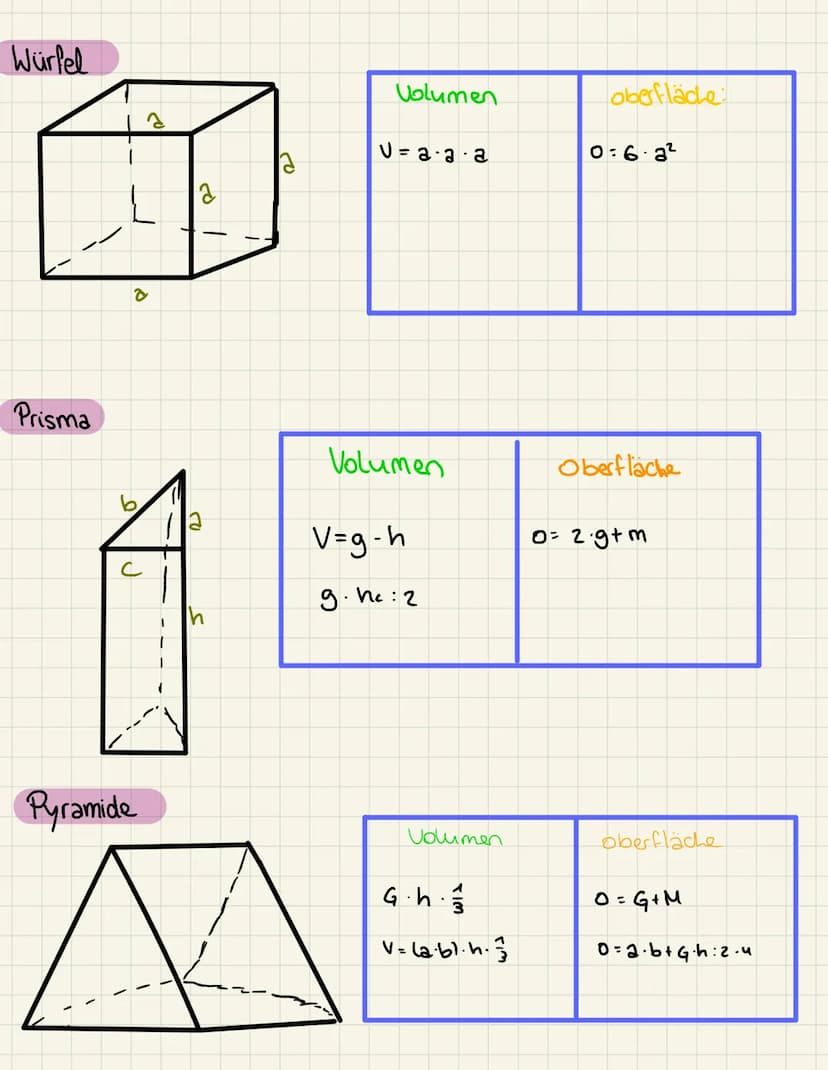 Würfel
Volumen
oberfläche:
a
a
a
a
V = a · a · a
O = 6 · a²
Prisma
Volumen
Oberfläche
b
a
c
h
V = g - h
g · hc : 2
O = 2 · g + m
Pyramide
Volumen
oberfläche
G · h · 1/3
V = (a·b) · h · 1/3
O = G + M
O = a · b + G · h : 2 · 4